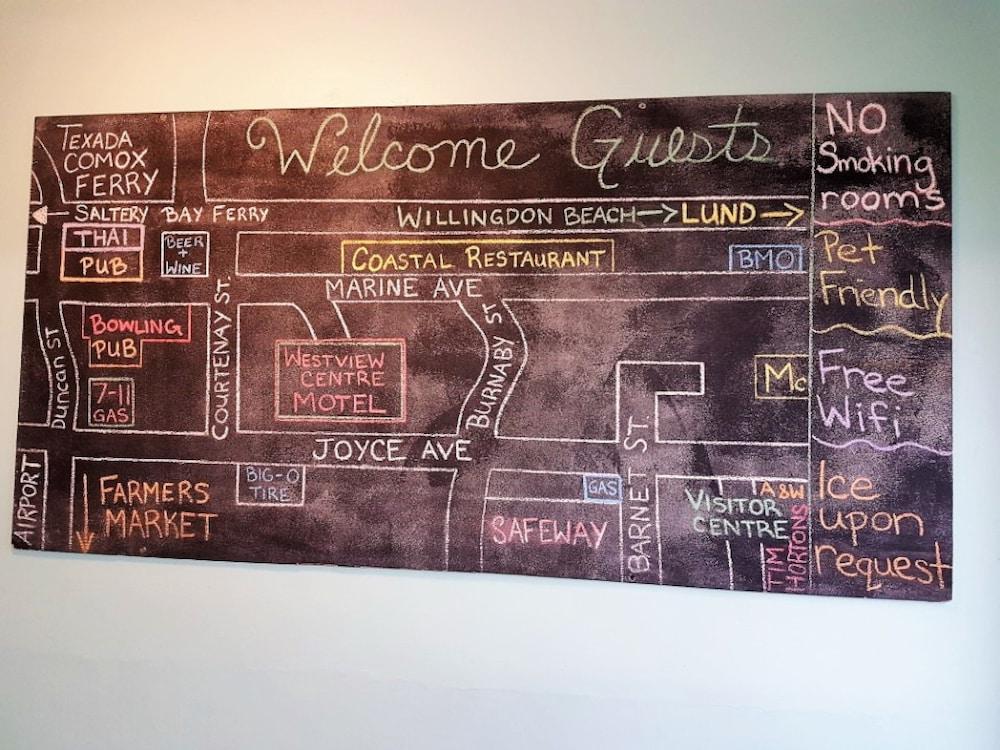 Welcome Guests
TEXADA
COMOX
FERRY
SALTERY BAY FERRY
WILLINGDON BEACH → LUND →
THAI
PUB
BEER
+
WINE
COASTAL RESTAURANT
BMO
MARINE AVE
Duncan ST
BOWLING
PUB
7-11
GAS
COURTENAY ST.
WESTVIEW
CENTRE
MOTEL
BURNABY ST
Mc
JOYCE AVE
AIRPORT
FARMERS
MARKET
BIG-O
TIRE
GAS
SAFEWAY
BARNET ST
VISITOR
CENTRE
A&W
TIM
HORTONS
NO
Smoking
rooms
Pet
Friendly
Free
Wifi
Ice
upon
request